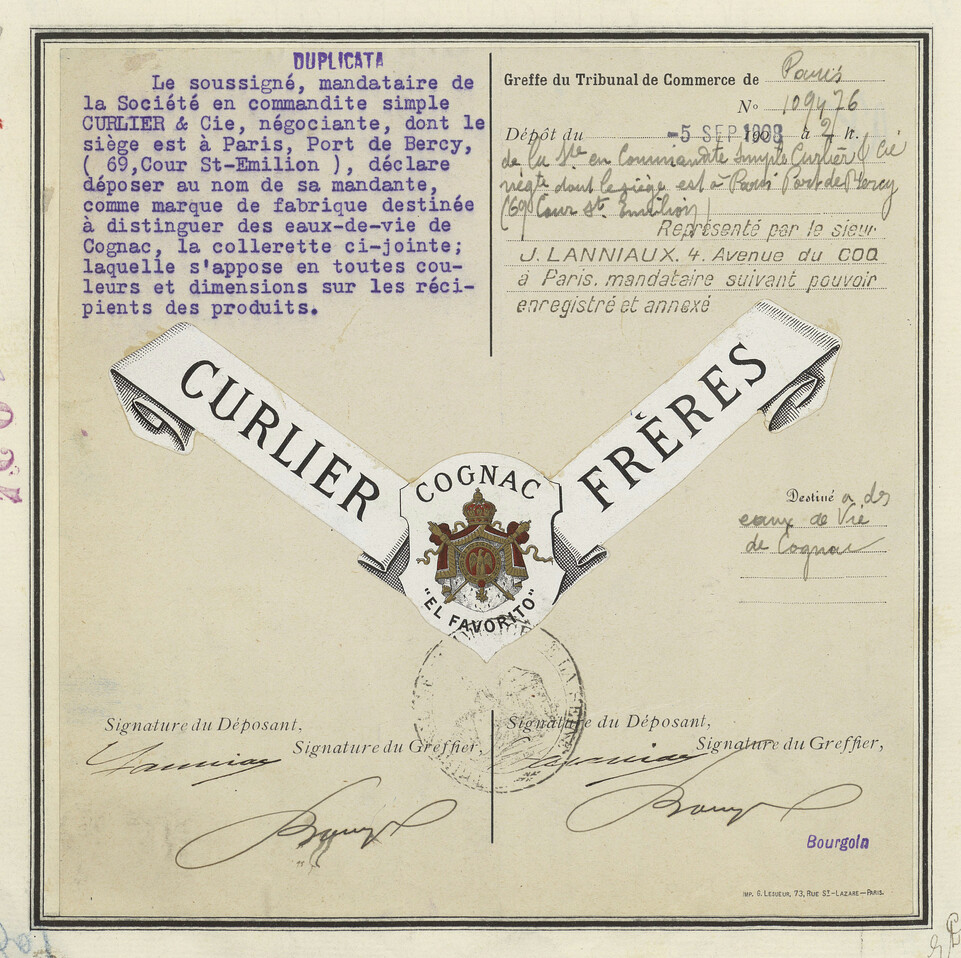 DUPLICATA
Le soussigné, mandataire de
la Société en commandite simple
CURLIER & Cie, négociante, dont le
siège est à Paris, Port de Bercy,
( 69,Cour St-Emilion ), déclare
déposer au nom de sa mandante,
comme marque de fabrique destinée
à distinguer des eaux-de-vie de
Cognac, la collerette ci-jointe;
laquelle s'appose en toutes cou-
leurs et dimensions sur les réci-
pients des produits.
Greffe du Tribunal de Commerce de Paris
N° 109476
Dépôt du -5 SEP 1908 à 2 h.
de la Sté en Commandite Simple Curlier & Cie
négte dont le siège est à Paris Port de Bercy
(69 Cour St. Emilion)
Représenté par le sieur
J. LANNIAUX. 4. Avenue du COQ
à Paris. mandataire suivant pouvoir
enregistré et annexé
CURLIER FRÈRES
COGNAC
"EL FAVORITO"
Destiné a des
eaux de Vie
de Cognac
Signature du Déposant,
Signature du Greffier,
Lanniaux
Signature du Déposant,
Signature du Greffier,
Lanniaux
Bourgoin
IMP. G. LESUEUR, 73, RUE ST-LAZARE-PARIS.